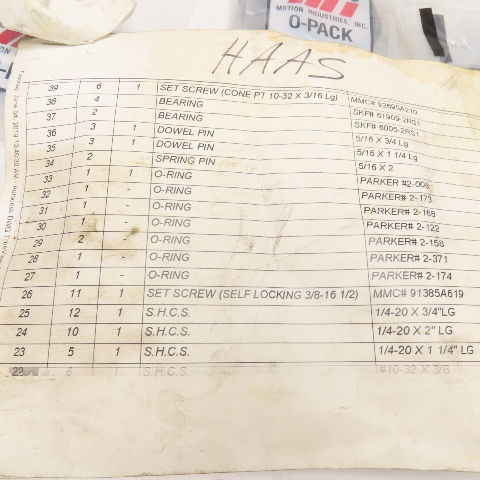 MOTION INDUSTRIES, INC.
O-PACK
HAAS
39 6 1 SET SCREW (CONE PT 10-32 X 3/16 Lg) MMC# 92695A210
38 4 BEARING SKF# 61909-2RS1
37 2 BEARING SKF# 6005-2RS1
36 3 1 DOWEL PIN 5/16 X 3/4 Lg
35 3 1 DOWEL PIN 5/16 X 1 1/4 Lg
34 2 SPRING PIN 5/16 X 2
33 1 1 O-RING PARKER #2-008
32 1 - O-RING PARKER# 2-173
31 1 - O-RING PARKER# 2-168
30 1 - O-RING PARKER# 2-122
29 2 - O-RING PARKER# 2-158
28 1 - O-RING PARKER# 2-371
27 1 - O-RING PARKER# 2-174
26 11 1 SET SCREW (SELF LOCKING 3/8-16 1/2) MMC# 91385A619
25 12 1 S.H.C.S. 1/4-20 X 3/4"LG
24 10 1 S.H.C.S. 1/4-20 X 2" LG
23 5 1 S.H.C.S. 1/4-20 X 1 1/4" LG
22 6 1 S.H.C.S. #10-32 X 3/8